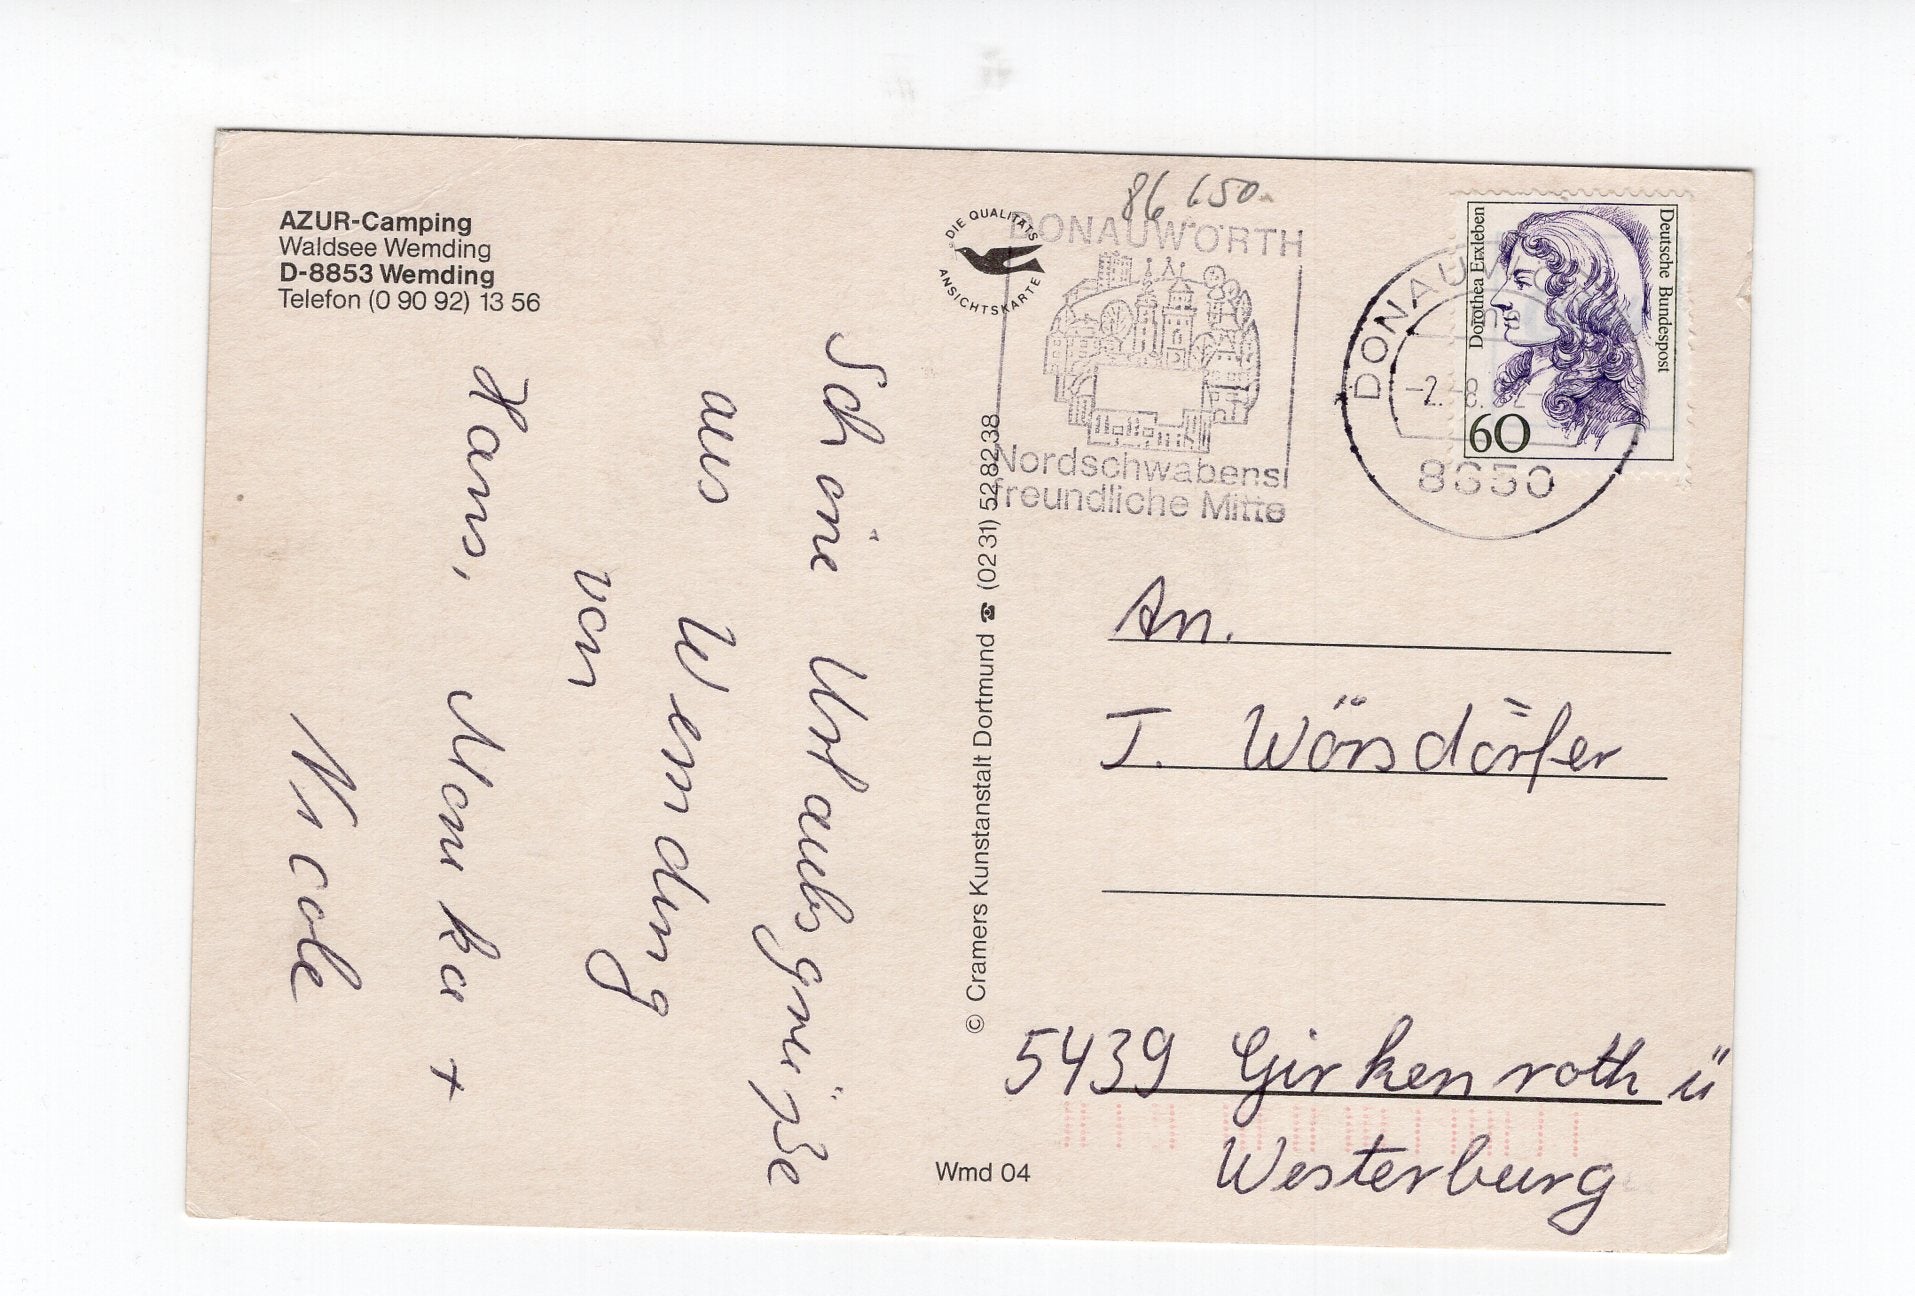 AZUR-Camping
Waldsee Wemding
D-8853 Wemding
Telefon (0 90 92) 13 56
Schöne Urlaubsgrüße
aus Wemding
von
Hans, Monika +
Nicole
DIE QUALITÄTS
ANSICHTSKARTE
© Cramers Kunstanstalt Dortmund ☎ (02 31) 52 82 38
Wmd 04
86 650
DONAUWÖRTH
Nordschwabens
freundliche Mitte
DONAUWÖ
-2.-8.
8850
Dorothea Erxleben
Deutsche Bundespost
60
An.
I. Wörsdörfer
5439 Girkenroth ü
Westerburg